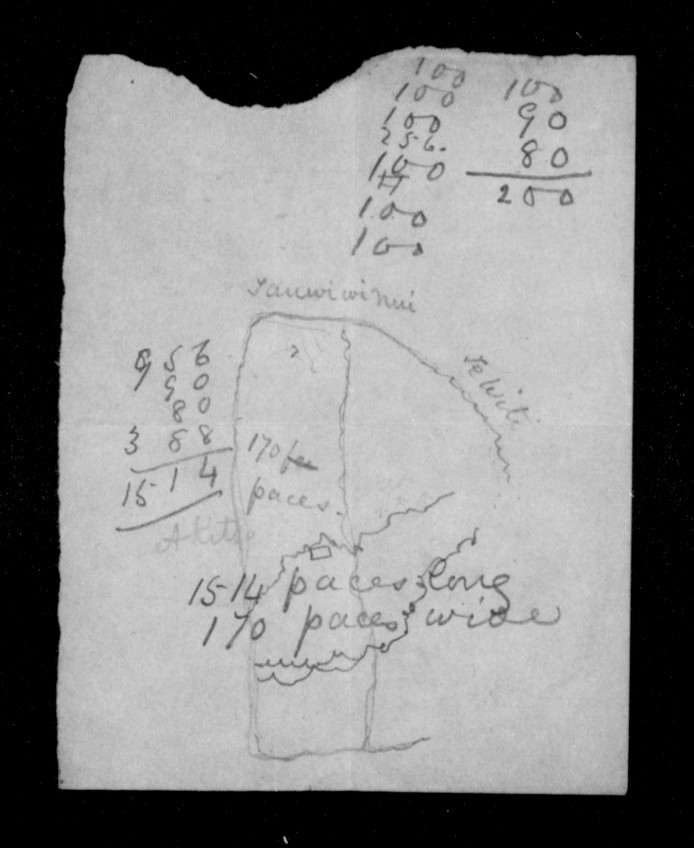 100
100
100
256.
100
100
100
100
90
80
200
Te Whiti
956
90
80
388
1514
170
paces.
1514 paces long
170 paces wide